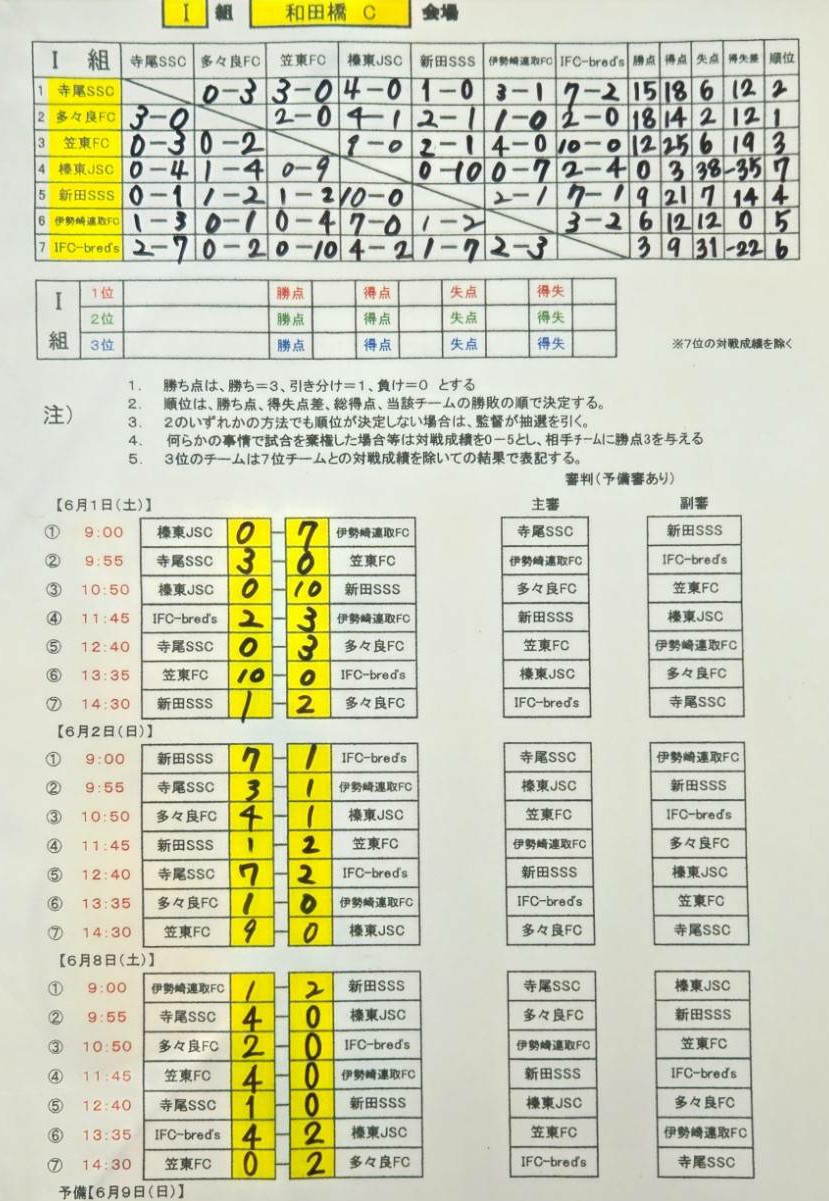 I 組 和田橋 C 会場
I 組 寺尾SSC 多々良FC 笠東FC 榛東JSC 新田SSS 伊勢崎連取FC IFC-bred's 勝点 得点 失点 得失差 順位
1 寺尾SSC 0-3 3-0 4-0 1-0 3-1 7-2 15 18 6 12 2
2 多々良FC 3-0 2-0 4-1 2-1 1-0 2-0 18 14 2 12 1
3 笠東FC 0-3 0-2 9-0 2-1 4-0 10-0 12 25 6 19 3
4 榛東JSC 0-4 1-4 0-9 0-10 0-7 2-4 0 3 38 -35 7
5 新田SSS 0-1 1-2 1-2 10-0 2-1 7-1 9 21 7 14 4
6 伊勢崎連取FC 1-3 0-1 0-4 7-0 1-2 3-2 6 12 12 0 5
7 IFC-bred's 2-7 0-2 0-10 4-2 1-7 2-3 3 9 31 -22 6
I 組 1位 勝点 得点 失点 得失
2位 勝点 得点 失点 得失
3位 勝点 得点 失点 得失
※7位の対戦成績を除く
注)
1. 勝ち点は、勝ち=3、引き分け=1、負け=0 とする
2. 順位は、勝ち点、得失点差、総得点、当該チームの勝敗の順で決定する。
3. 2のいずれかの方法でも順位が決定しない場合は、監督が抽選を引く。
4. 何らかの事情で試合を棄権した場合等は対戦成績を0-5とし、相手チームに勝点3を与える
5. 3位のチームは7位チームとの対戦成績を除いての結果で表記する。
審判(予備審あり)
【6月1日(土)】 主審 副審
① 9:00 榛東JSC 0 - 7 伊勢崎連取FC 寺尾SSC 新田SSS
② 9:55 寺尾SSC 3 - 0 笠東FC 伊勢崎連取FC IFC-bred's
③ 10:50 榛東JSC 0 - 10 新田SSS 多々良FC 笠東FC
④ 11:45 IFC-bred's 2 - 3 伊勢崎連取FC 新田SSS 榛東JSC
⑤ 12:40 寺尾SSC 0 - 3 多々良FC 笠東FC 伊勢崎連取FC
⑥ 13:35 笠東FC 10 - 0 IFC-bred's 榛東JSC 多々良FC
⑦ 14:30 新田SSS 1 - 2 多々良FC IFC-bred's 寺尾SSC
【6月2日(日)】
① 9:00 新田SSS 7 - 1 IFC-bred's 寺尾SSC 伊勢崎連取FC
② 9:55 寺尾SSC 3 - 1 伊勢崎連取FC 榛東JSC 新田SSS
③ 10:50 多々良FC 4 - 1 榛東JSC 笠東FC IFC-bred's
④ 11:45 新田SSS 1 - 2 笠東FC 伊勢崎連取FC 多々良FC
⑤ 12:40 寺尾SSC 7 - 2 IFC-bred's 新田SSS 榛東JSC
⑥ 13:35 多々良FC 1 - 0 伊勢崎連取FC IFC-bred's 笠東FC
⑦ 14:30 笠東FC 9 - 0 榛東JSC 多々良FC 寺尾SSC
【6月8日(土)】
① 9:00 伊勢崎連取FC 1 - 2 新田SSS 寺尾SSC 榛東JSC
② 9:55 寺尾SSC 4 - 0 榛東JSC 多々良FC 新田SSS
③ 10:50 多々良FC 2 - 0 IFC-bred's 伊勢崎連取FC 笠東FC
④ 11:45 笠東FC 4 - 0 伊勢崎連取FC 新田SSS IFC-bred's
⑤ 12:40 寺尾SSC 1 - 0 新田SSS 榛東JSC 多々良FC
⑥ 13:35 IFC-bred's 4 - 2 榛東JSC 笠東FC 伊勢崎連取FC
⑦ 14:30 笠東FC 0 - 2 多々良FC IFC-bred's 寺尾SSC
予備【6月9日(日)】